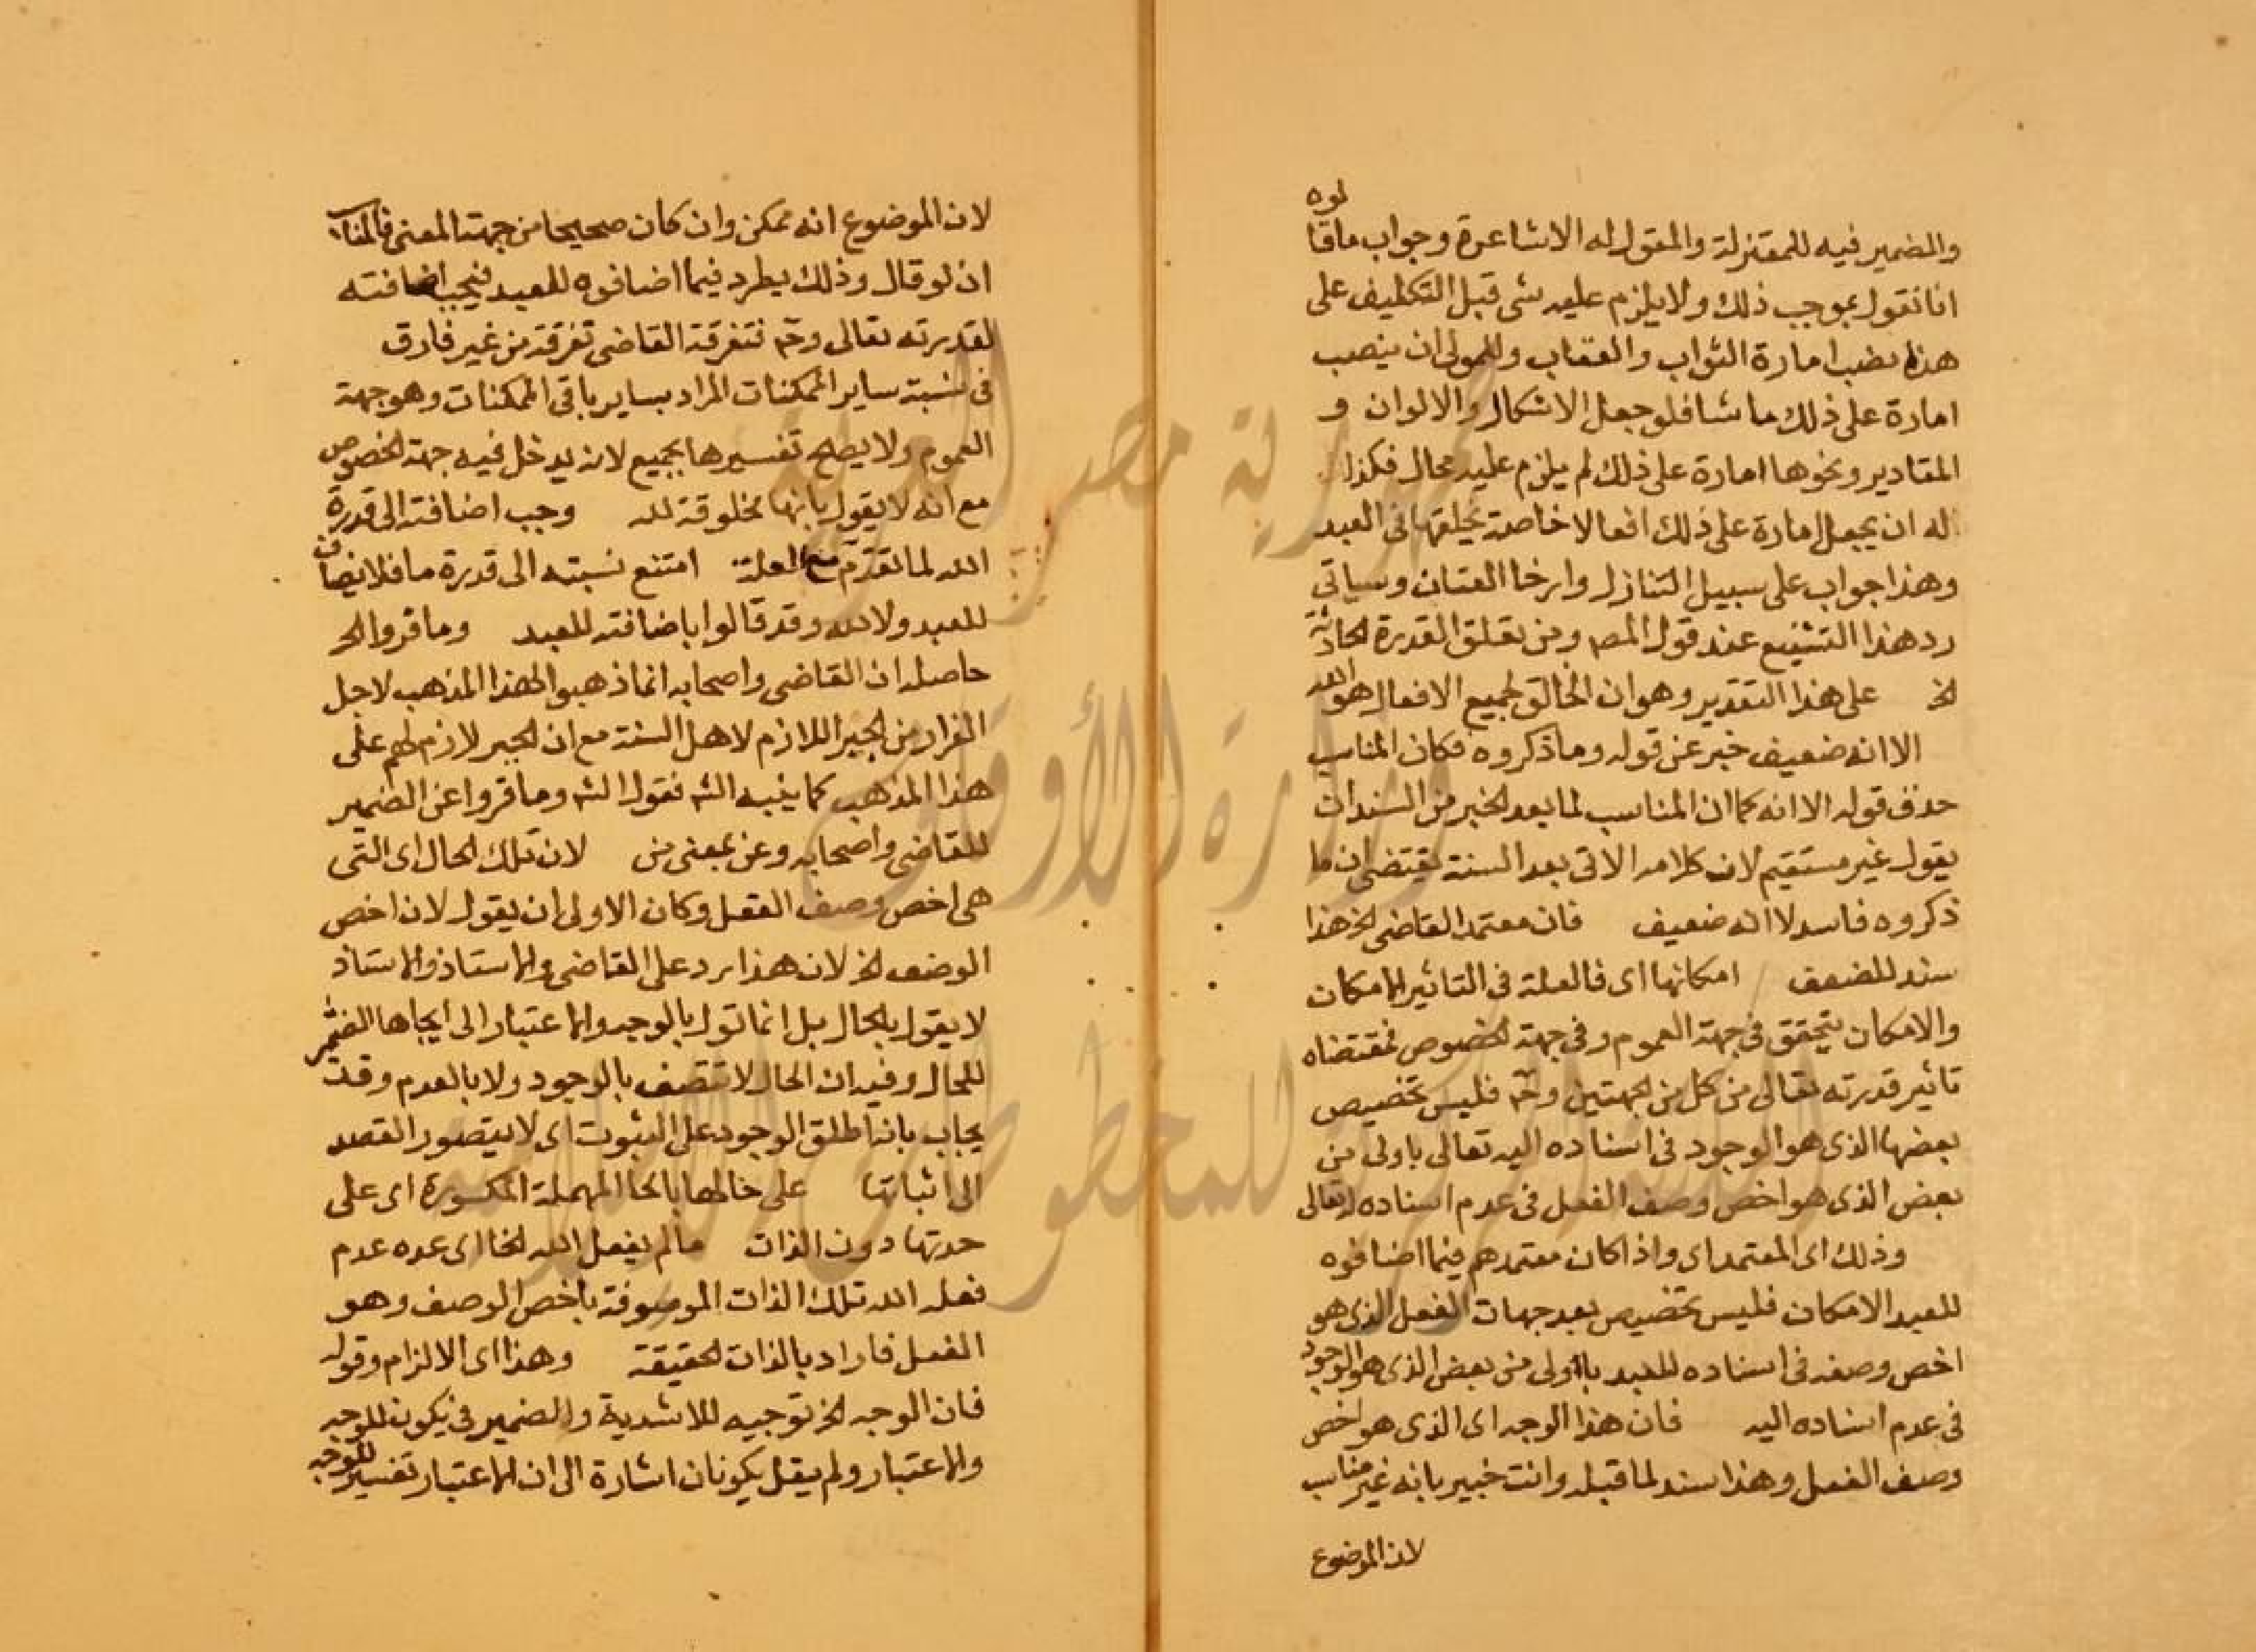 والضمير فيه للمعتزلة والمقول له الاشاعرة وجواب ما قالوه
انا نقول بموجب ذلك ولا يلزم عليه شى قبل التكليف على
هذا نصب امارة الثواب والعقاب وللمولى ان ينصب
امارة على ذلك ما شا فلو جعل الاشكال والالوان و
المقادير ونحوها امارة على ذلك لم يلزم عليه محال فكذا
له ان يجعل امارة على ذلك افعالا خاصة يخلقها فى العبد
وهذا جواب على سبيل التنازل وارخا العنان وسياتى
رد هذا التشنيع عند قول المص ومن تعلق القدرة الحادثة
الخ على هذا التقدير وهو ان الخالق لجميع الافعال هو الله
الا انه ضعيف خبر عن قوله وما ذكروه فكان المناسب
حذف قوله الا انه كما ان المناسب لما بعد الخبر من السند ان
يقول غير مستقيم لان كلامه الاتى بعد السنة يقتضى ان ما
ذكروه فاسد لا انه ضعيف فان معتمد القاضى الخ هذا
سند للضعف امكانها اى فالعلة فى التاثير الامكان
والامكان يتحقق فى جهة العموم وفى جهة الخصوص فمقتضاه
تاثير قدرته تعالى من كل من الجهتين وح فليس تخصيص
بعضها الذى هو الوجود فى اسناده اليه تعالى باولى من
بعض الذى هو اخص وصف الفعل فى عدم اسناده له تعالى
وذلك اى المعتمد اى واذا كان معتمدهم فيما اضافوه
للعبد الامكان فليس تخصيص بعد جهات الفعل الذى هو
اخص وصفه فى اسناده للعبد باولى من بعض الذى هو الوجود
فى عدم اسناده اليه فان هذا الوجه اى الذى هو اخص
وصف الفعل وهذا سند لما قبله وانت خبير بانه غير مناسب
لان الموضوع
لان الموضوع انه ممكن وان كان صحيحا من جهة المعنى فالمناسب
ان لو قال وذلك يطرد فيما اضافوه للعبد فيجب اضافته
لقدرته تعالى وح فتفرقة القاضى تفرقة من غير فارق
فى نسبة ساير الممكنات المراد بساير باقى الممكنات وهو جهة
العموم ولا يصح تفسيرها بجميع لانه يدخل فيه جهة الخصوص
مع انه لا يقول بانها مخلوقة لله وجب اضافته الى قدرة
الله لما تقدم مع العلة امتنع نسبته الى قدرة ما فلا يضاف
للعبد ولا لله وقد قالوا باضافته للعبد وما فروا الخ
حاصله ان القاضى واصحابه انما ذهبوا الى هذا المذهب لاجل
الفرار من الجبر اللازم لاهل السنة مع ان الجبر لازم لهم على
هذا المذهب كما يبينه الش فقول الش وما فروا عن الضمير
للقاضى واصحابه وعن بمعنى من لان تلك الحال اى التى
هى اخص وصف الفعل وكان الاولى ان يقول لان اخص
الوصف الخ لان هذا يرد على القاضى والاستاذ والاستاذ
لا يقول بالحال بل انما تول بالوجه والاعتبار الى ايجاها الضمير
للحال وفيه ان الحال لا تتصف بالوجود ولا بالعدم وقد
يجاب بانه اطلق الوجود على الثبوت اى لا يتصور القصد
الى اثباتها على حالها بالحا المهملة المكسورة اى على
حدتها دون الذات ما لم يفعل الله الخ اى عده عدم
فعل الله تلك الذات الموصوفة باخص الوصف وهو
الفعل فاراد بالذات الحقيقة وهذا اى الالزام وقوله
فان الوجه الخ توجيه للاشدية والضمير فى يكون للوجه
والاعتبار ولم يقل يكونان اشارة الى ان الاعتبار تفسير للوجه